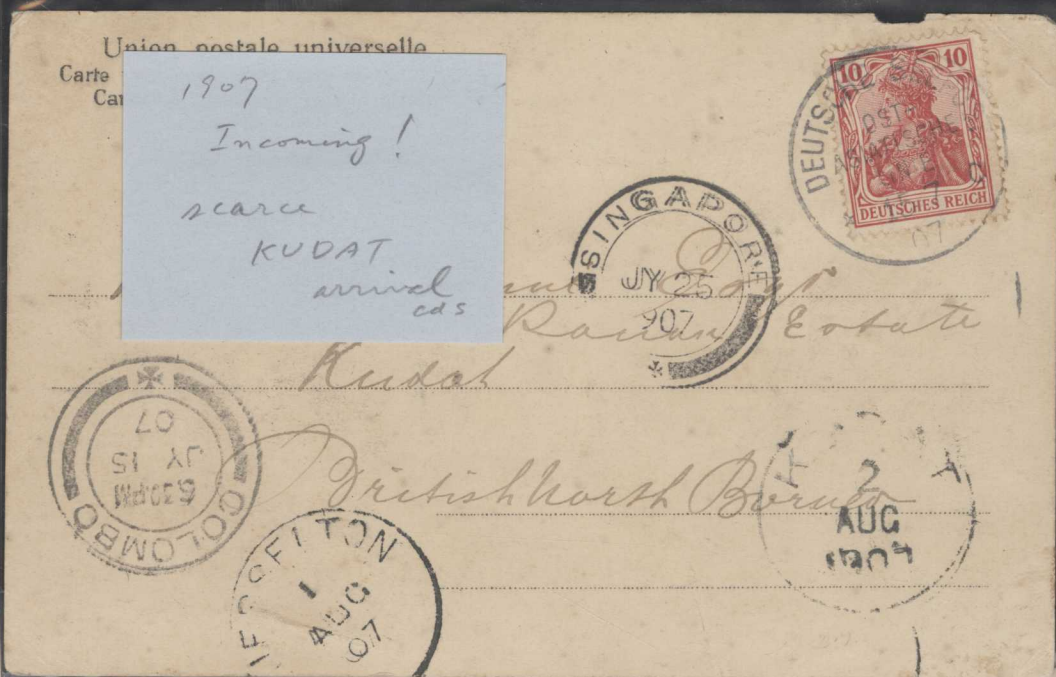 Union postale universelle
Carte
Car
1907
Incoming!
scarce
KUDAT
arrival
cds
10 10
DEUTSCHES REICH
DEUTSCHE
07
SINGAPORE
JY 25
907
Estate
Kudat
British North Borneo
COLOMBO
6.30PM
JY 15
07
JESSELTON
1
AUG
07
2
AUG
1907